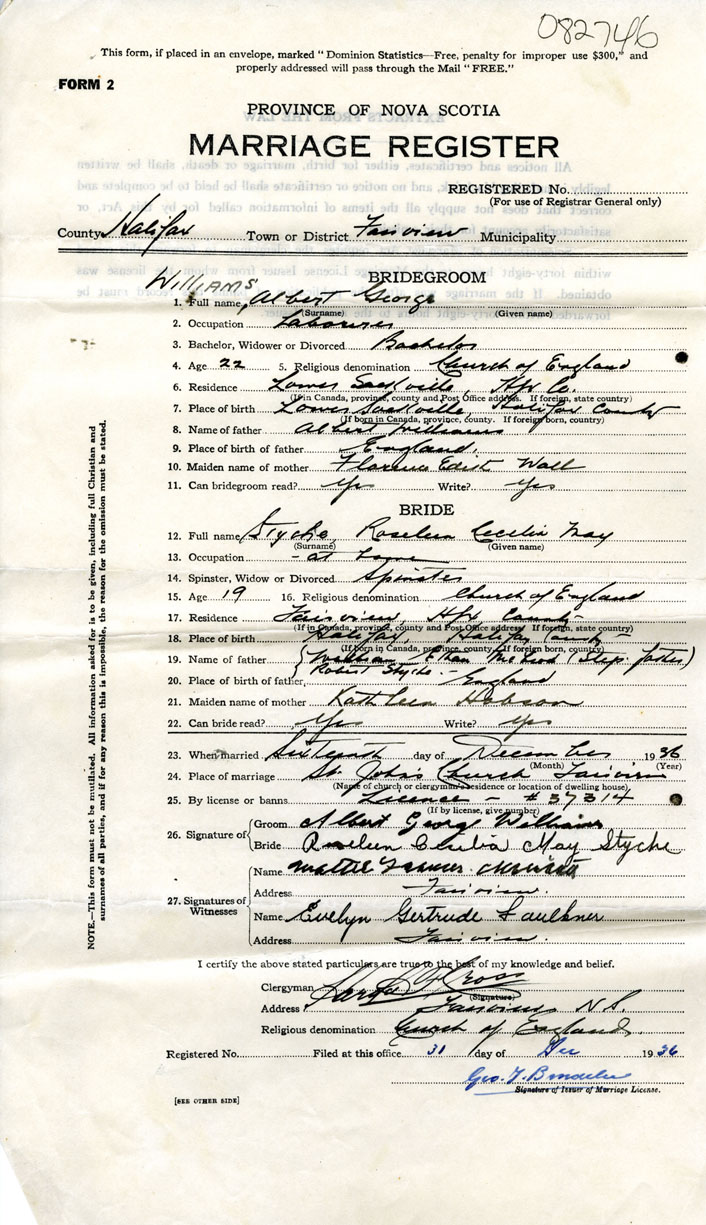 082746
This form, if placed in an envelope, marked "Dominion Statistics—Free, penalty for improper use $300," and
properly addressed will pass through the Mail "FREE."
FORM 2
PROVINCE OF NOVA SCOTIA
MARRIAGE REGISTER
REGISTERED No.
(For use of Registrar General only)
County Halifax Town or District Fairview Municipality
BRIDEGROOM
WILLIAMS
1. Full name, Albert George
(Surname) (Given name)
2. Occupation Labourer
3. Bachelor, Widower or Divorced Bachelor
4. Age 22 5. Religious denomination Church of England
6. Residence Lower Sackville, Hfx Co.
(If in Canada, province, county and Post Office address. If foreign, state country)
7. Place of birth Lower Sackville, Halifax County
(If born in Canada, province, county. If foreign born, country)
8. Name of father Albert Williams
9. Place of birth of father England.
10. Maiden name of mother Florence Edith Wall
11. Can bridegroom read? Yes Write? Yes
BRIDE
12. Full name Styche, Roseleen Cecelia May
(Surname) (Given name)
13. Occupation - at home
14. Spinster, Widow or Divorced Spinster
15. Age 19 16. Religious denomination Church of England
17. Residence Fairview, Hfx County
(If in Canada, province, county and Post Office address If foreign, state country)
18. Place of birth Halifax, Halifax County
(If born in Canada, province, county. If foreign born, country)
19. Name of father William McLeod (Step father)
Robert Styche.
20. Place of birth of father, England
21. Maiden name of mother Kathleen Hobson
22. Can bride read? Yes Write? Yes
23. When married Sixteenth day of December 1936
(Month) (Year)
24. Place of marriage St. John's Church Fairview
(Name of church or clergyman's residence or location of dwelling house)
25. By license or banns License - # 37314
(If by license, give number)
26. Signature of Groom Albert George Williams
Bride Roseleen May Styche
27. Signatures of Witnesses
Name
Address Fairview.
Name Evelyn Gertrude Faulkner
Address Fairview.
I certify the above stated particulars are true to the best of my knowledge and belief.
Clergyman Cross
(Signature)
Address Fairview N.S.
Religious denomination Church of England.
Registered No. Filed at this office 31 day of Dec 1936
Geo. T.
Signature of Issuer of Marriage License.
[SEE OTHER SIDE]
NOTE.—This form must not be mutilated. All information asked for is to be given, including full Christian and
surnames of all parties, and if for any reason this is impossible, the reason for the omission must be stated.